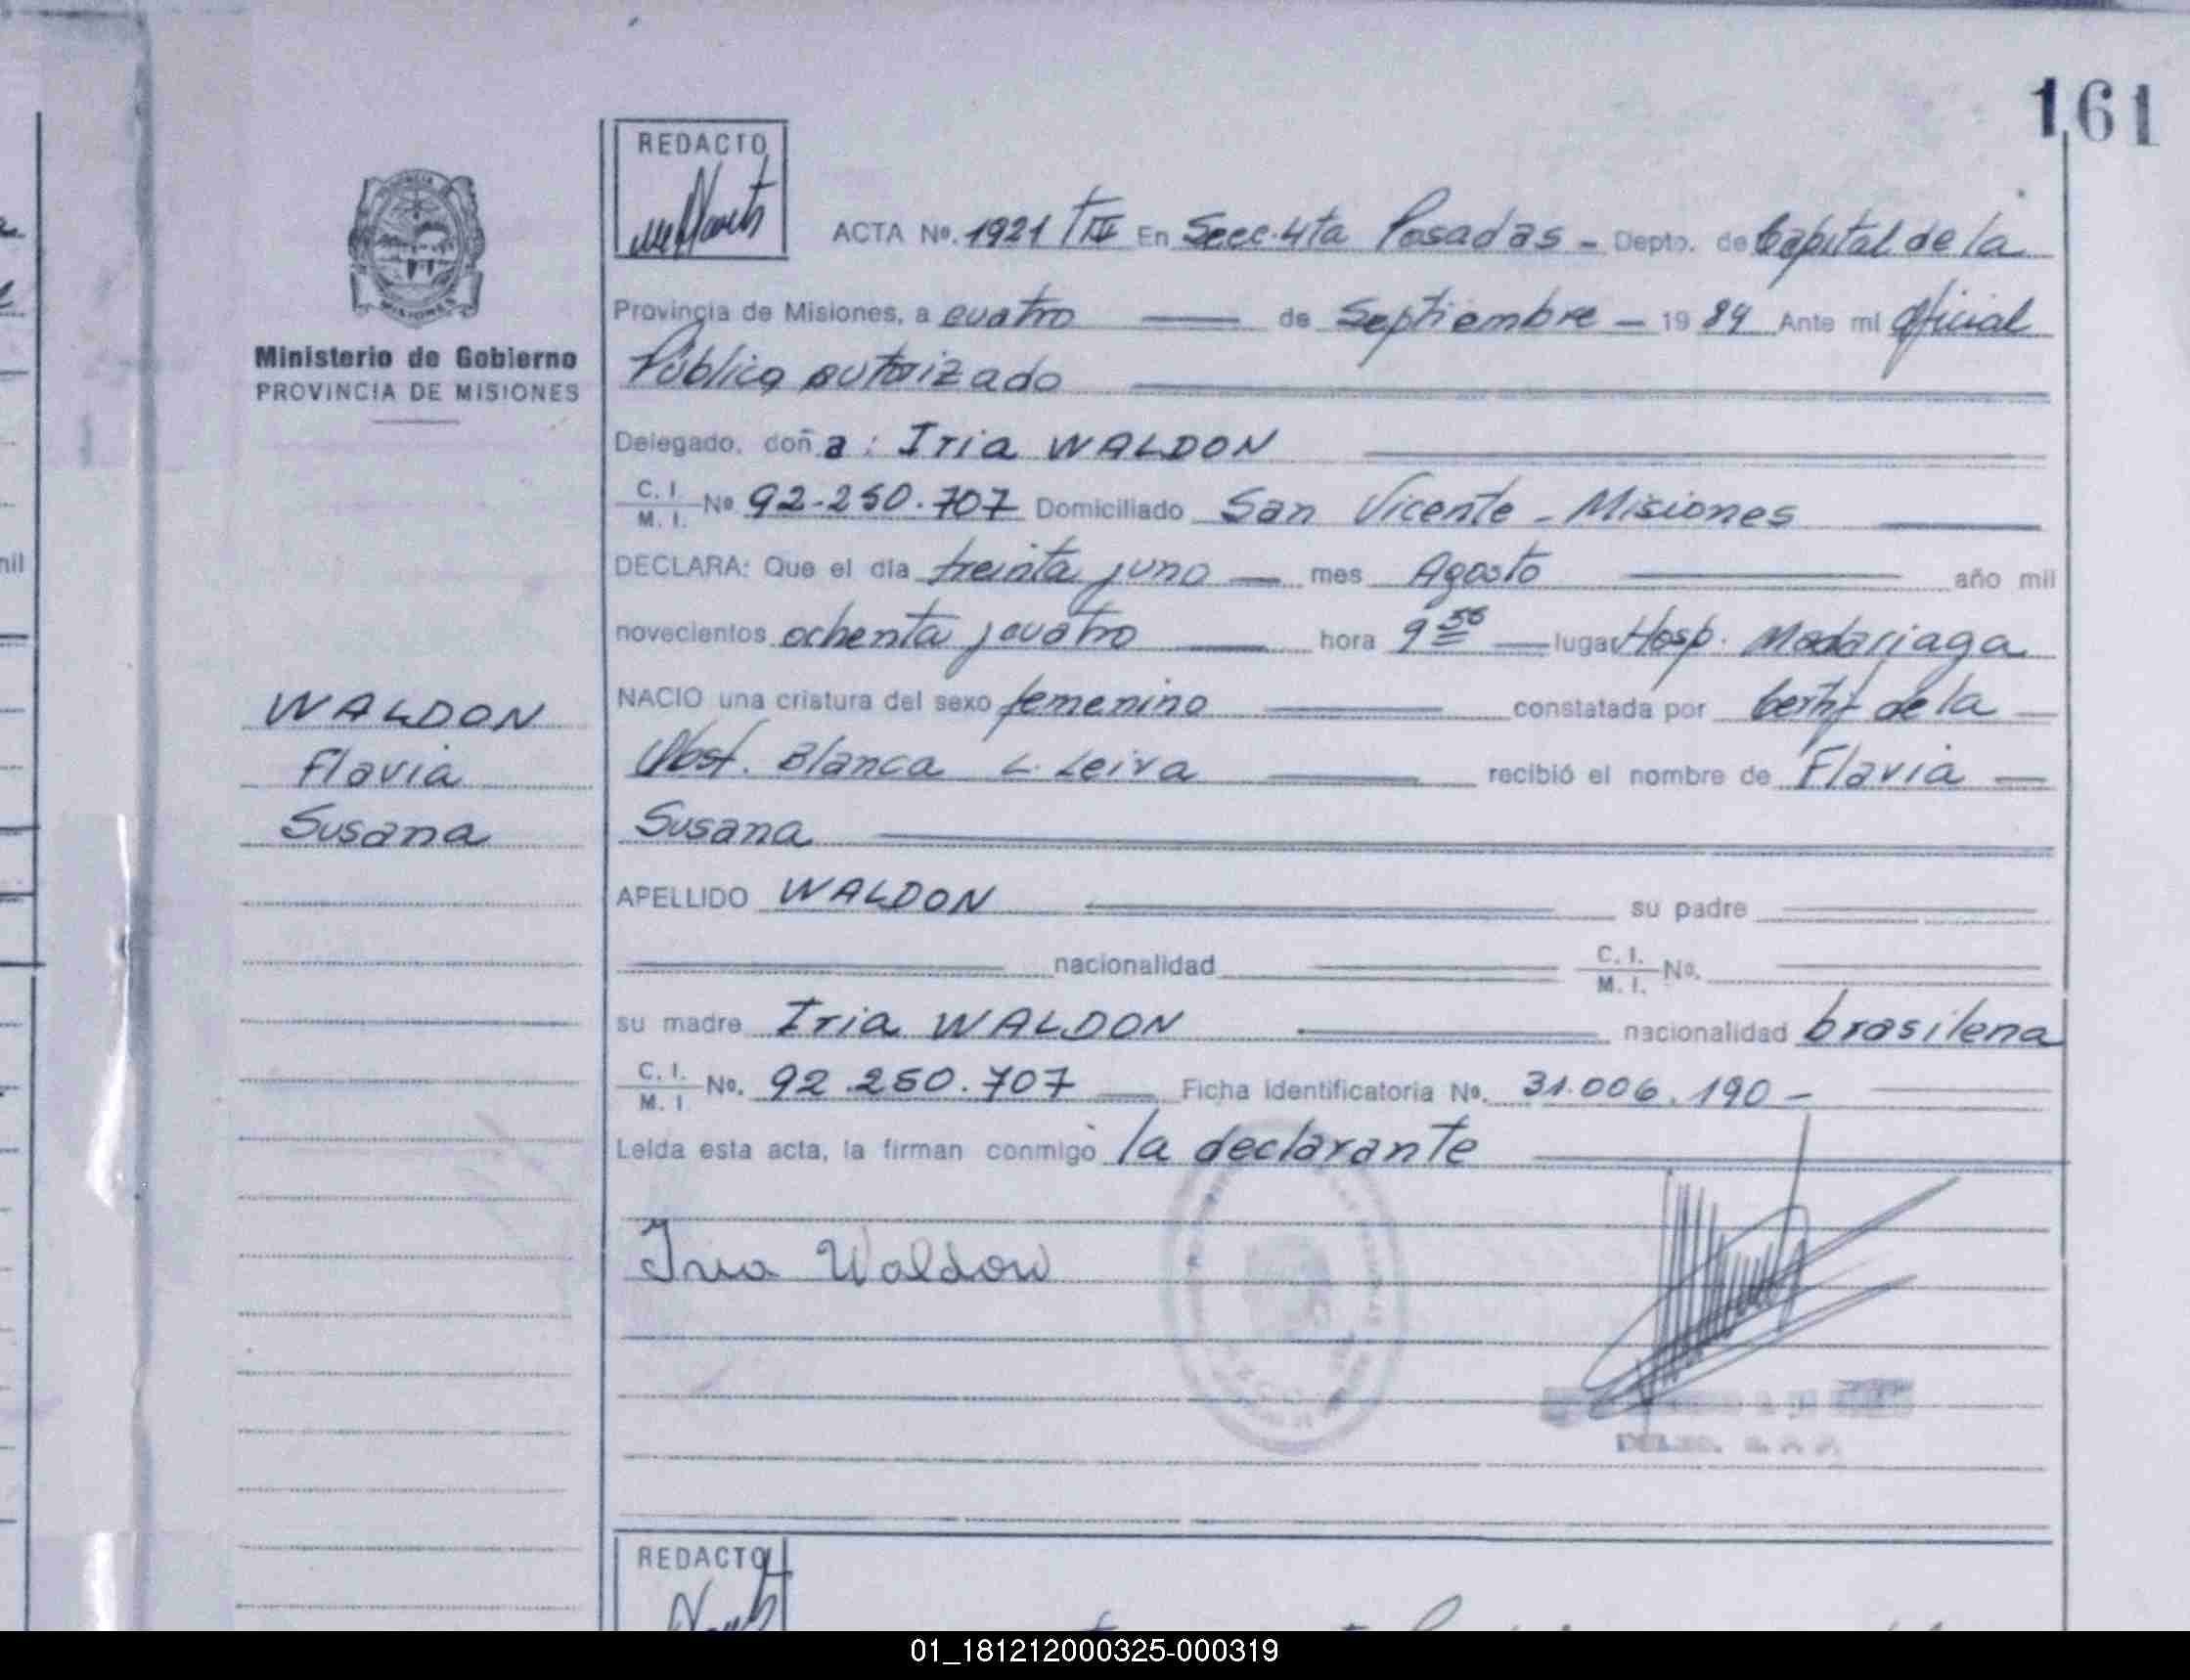 161
REDACTO
ACTA Nº. 1921 TIV En Secc. 4ta Posadas - Depto. de Capital de la
Provincia de Misiones, a cuatro de Septiembre - 19 84 Ante mi Oficial
Público autorizado
Ministerio de Gobierno
PROVINCIA DE MISIONES
Delegado, doña: Iria WALDON
C. I. M. I. Nº 92-250.707 Domiciliado San Vicente - Misiones
DECLARA: Que el día treinta y uno mes Agosto año mil
novecientos ochenta y cuatro hora 9 50 lugar Hosp. Madariaga
NACIO una cristura del sexo femenino constatada por Certif de la
Obst. Blanca L. Leiva recibió el nombre de Flavia
Susana
WALDON
Flavia
Susana
APELLIDO WALDON su padre
nacionalidad C. I. M. I. Nº.
su madre Iria WALDON nacionalidad brasilena
C. I. M. I. Nº. 92.250.707 Ficha identificatoria Nº. 31.006.190 -
Leida esta acta, la firman conmigo la declarante
Iria Waldow
REDACTO
01_181212000325-000319